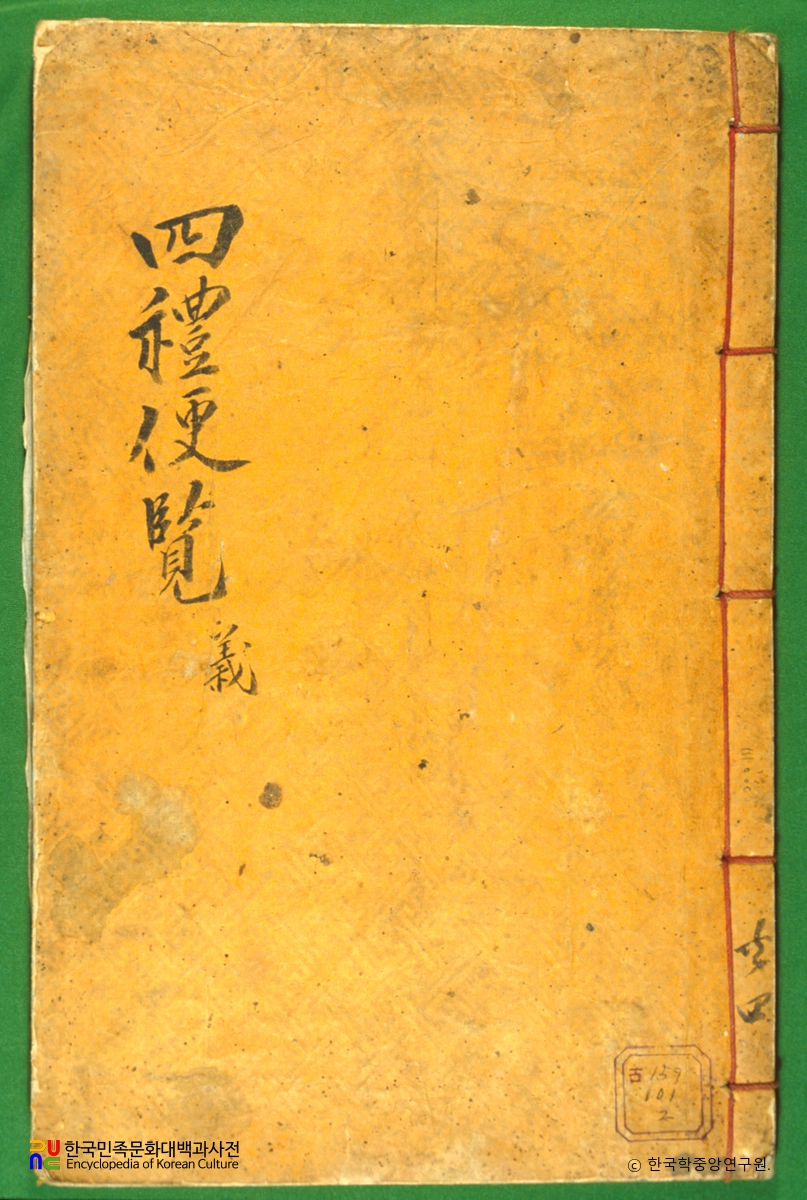 四禮便覽
義
共四
古 159
101
2
한국민족문화대백과사전
Encyclopedia of Korean Culture
© 한국학중앙연구원.